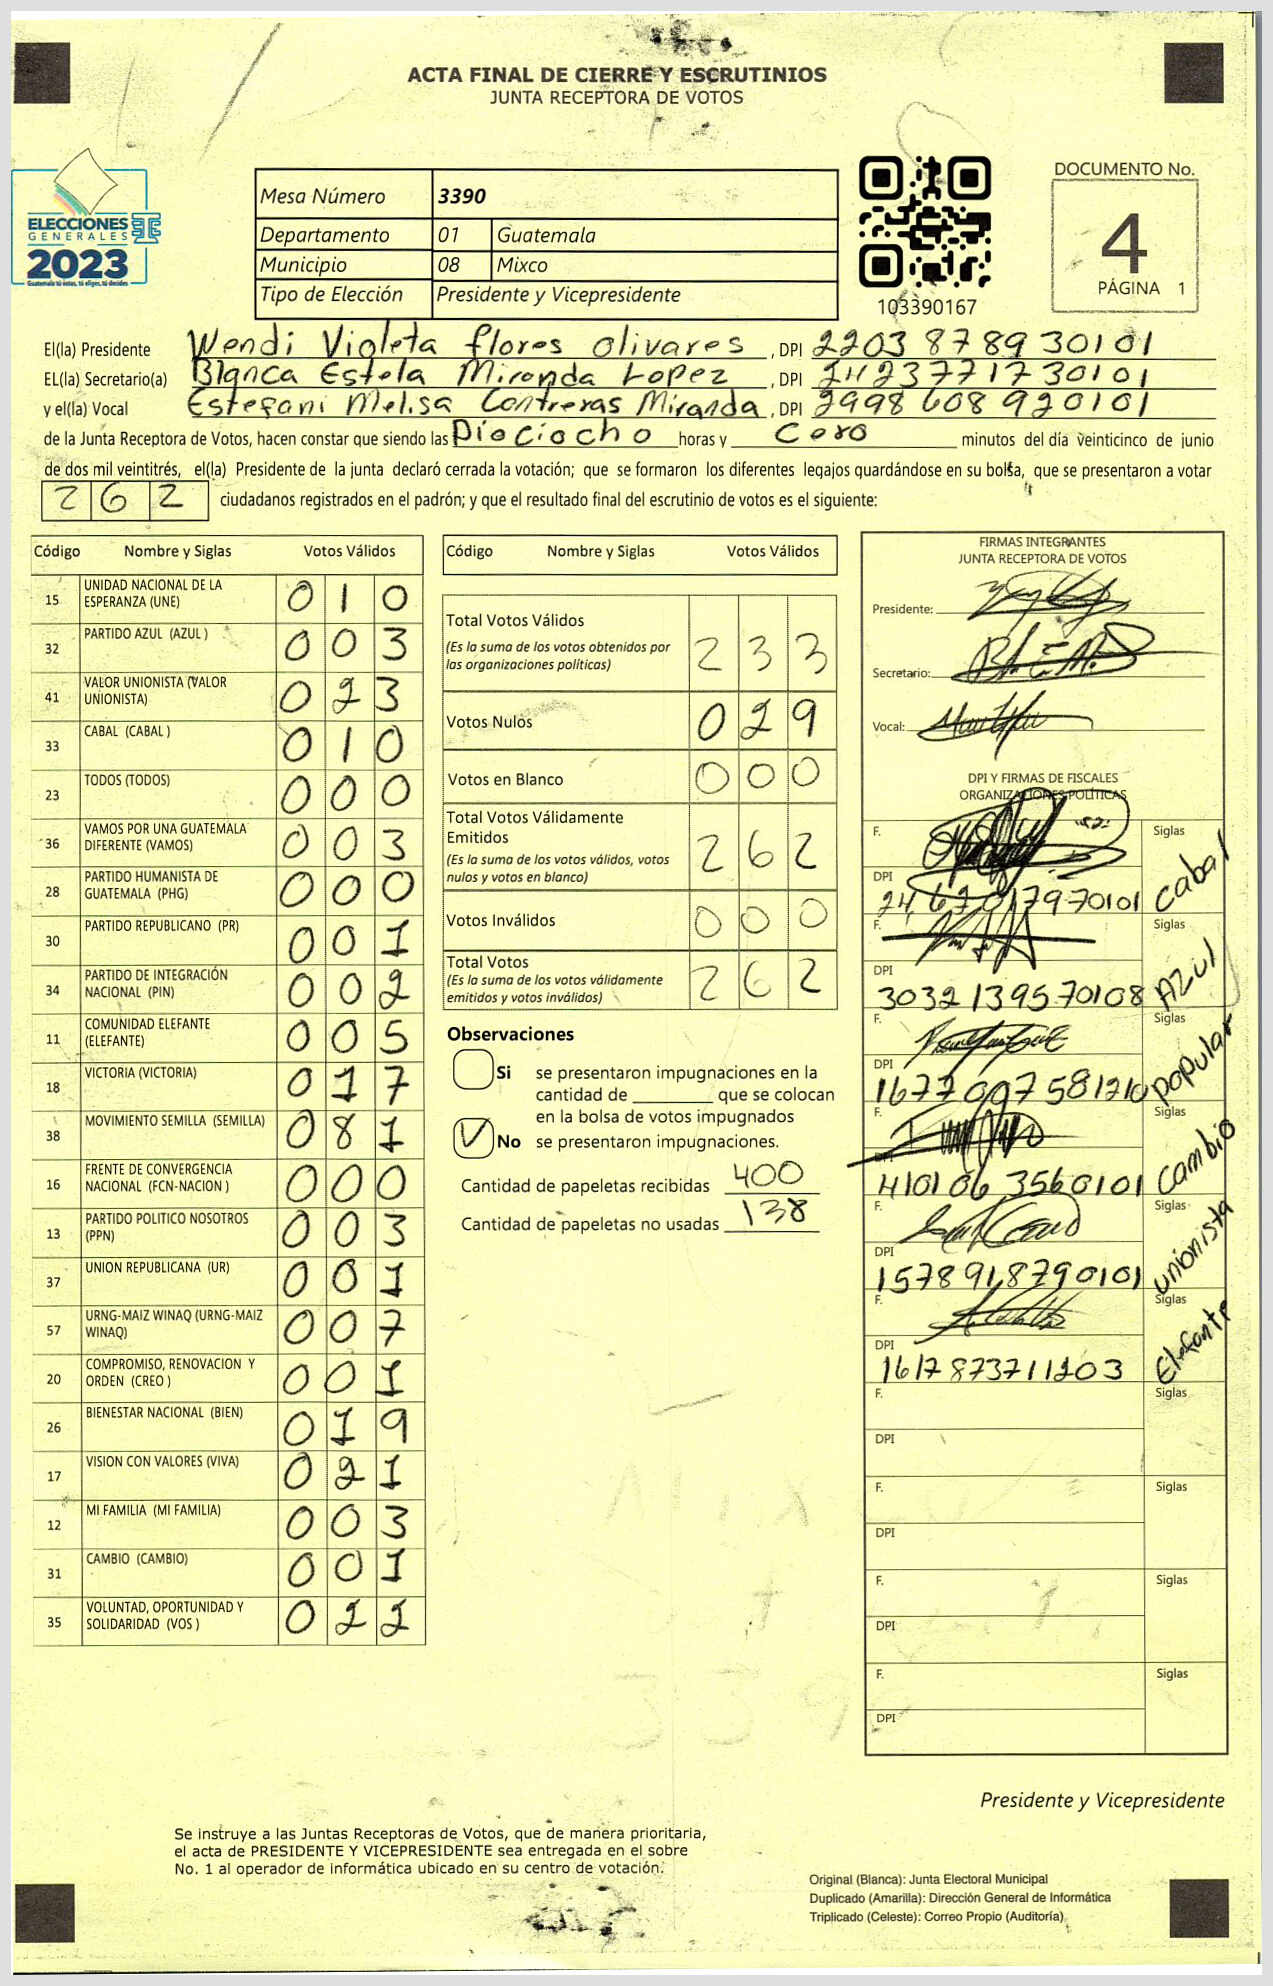 ACTA FINAL DE CIERRE Y ESCRUTINIOS
JUNTA RECEPTORA DE VOTOS
ELECCIONES
GENERALES
2023
Guatemala tú votas, tú eliges, tú decides
Mesa Número 3390
Departamento 01 Guatemala
Municipio 08 Mixco
Tipo de Elección Presidente y Vicepresidente
103390167
DOCUMENTO No.
4
PÁGINA 1
El(la) Presidente Wendi Violeta flores olivares, DPI 2203 87893 0101
EL(la) Secretario(a) Blanca Estela Miranda Lopez, DPI 2423771730101
y el(la) Vocal Estefani Melisa Contreras Miranda, DPI 2998 608920101
de la Junta Receptora de Votos, hacen constar que siendo las Dieciocho horas y Cero minutos del día veinticinco de junio
de dos mil veintitrés, el(la) Presidente de la junta declaró cerrada la votación; que se formaron los diferentes legajos quardándose en su bolsa, que se presentaron a votar
262 ciudadanos registrados en el padrón; y que el resultado final del escrutinio de votos es el siguiente:
Código Nombre y Siglas Votos Válidos
15 UNIDAD NACIONAL DE LA ESPERANZA (UNE) 010
32 PARTIDO AZUL (AZUL ) 003
41 VALOR UNIONISTA (VALOR UNIONISTA) 023
33 CABAL (CABAL ) 010
23 TODOS (TODOS) 000
36 VAMOS POR UNA GUATEMALA DIFERENTE (VAMOS) 003
28 PARTIDO HUMANISTA DE GUATEMALA (PHG) 000
30 PARTIDO REPUBLICANO (PR) 001
34 PARTIDO DE INTEGRACIÓN NACIONAL (PIN) 002
11 COMUNIDAD ELEFANTE (ELEFANTE) 005
18 VICTORIA (VICTORIA) 017
38 MOVIMIENTO SEMILLA (SEMILLA) 081
16 FRENTE DE CONVERGENCIA NACIONAL (FCN-NACION ) 000
13 PARTIDO POLITICO NOSOTROS (PPN) 003
37 UNION REPUBLICANA (UR) 001
57 URNG-MAIZ WINAQ (URNG-MAIZ WINAQ) 007
20 COMPROMISO, RENOVACION Y ORDEN (CREO ) 001
26 BIENESTAR NACIONAL (BIEN) 019
17 VISION CON VALORES (VIVA) 021
12 MI FAMILIA (MI FAMILIA) 003
31 CAMBIO (CAMBIO) 001
35 VOLUNTAD, OPORTUNIDAD Y SOLIDARIDAD (VOS ) 022
Código Nombre y Siglas Votos Válidos
Total Votos Válidos 233
(Es la suma de los votos obtenidos por
las organizaciones políticas)
Votos Nulos 029
Votos en Blanco 000
Total Votos Válidamente
Emitidos 262
(Es la suma de los votos válidos, votos
nulos y votos en blanco)
Votos Inválidos 000
Total Votos 262
(Es la suma de los votos válidamente
emitidos y votos inválidos)
Observaciones
Si se presentaron impugnaciones en la
cantidad de ________ que se colocan
en la bolsa de votos impugnados
No se presentaron impugnaciones.
Cantidad de papeletas recibidas 400
Cantidad de papeletas no usadas 138
FIRMAS INTEGRANTES
JUNTA RECEPTORA DE VOTOS
Presidente:
Secretario:
Vocal:
DPI Y FIRMAS DE FISCALES
ORGANIZACIONES POLÍTICAS
F. Siglas cabal
DPI
F. Siglas AZul
DPI 3032139570108
F. Siglas popular
DPI
F. Siglas cambio
DPI 4101063560101
F. Siglas unionista
DPI 1578918790101
F. Siglas Elefante
DPI 1617873711203
F. Siglas
DPI
F. Siglas
DPI
F. Siglas
DPI
F. Siglas
DPI
Presidente y Vicepresidente
Se instruye a las Juntas Receptoras de Votos, que de manera prioritaria,
el acta de PRESIDENTE Y VICEPRESIDENTE sea entregada en el sobre
No. 1 al operador de informática ubicado en su centro de votación.
Original (Blanca): Junta Electoral Municipal
Duplicado (Amarilla): Dirección General de Informática
Triplicado (Celeste): Correo Propio (Auditoría)